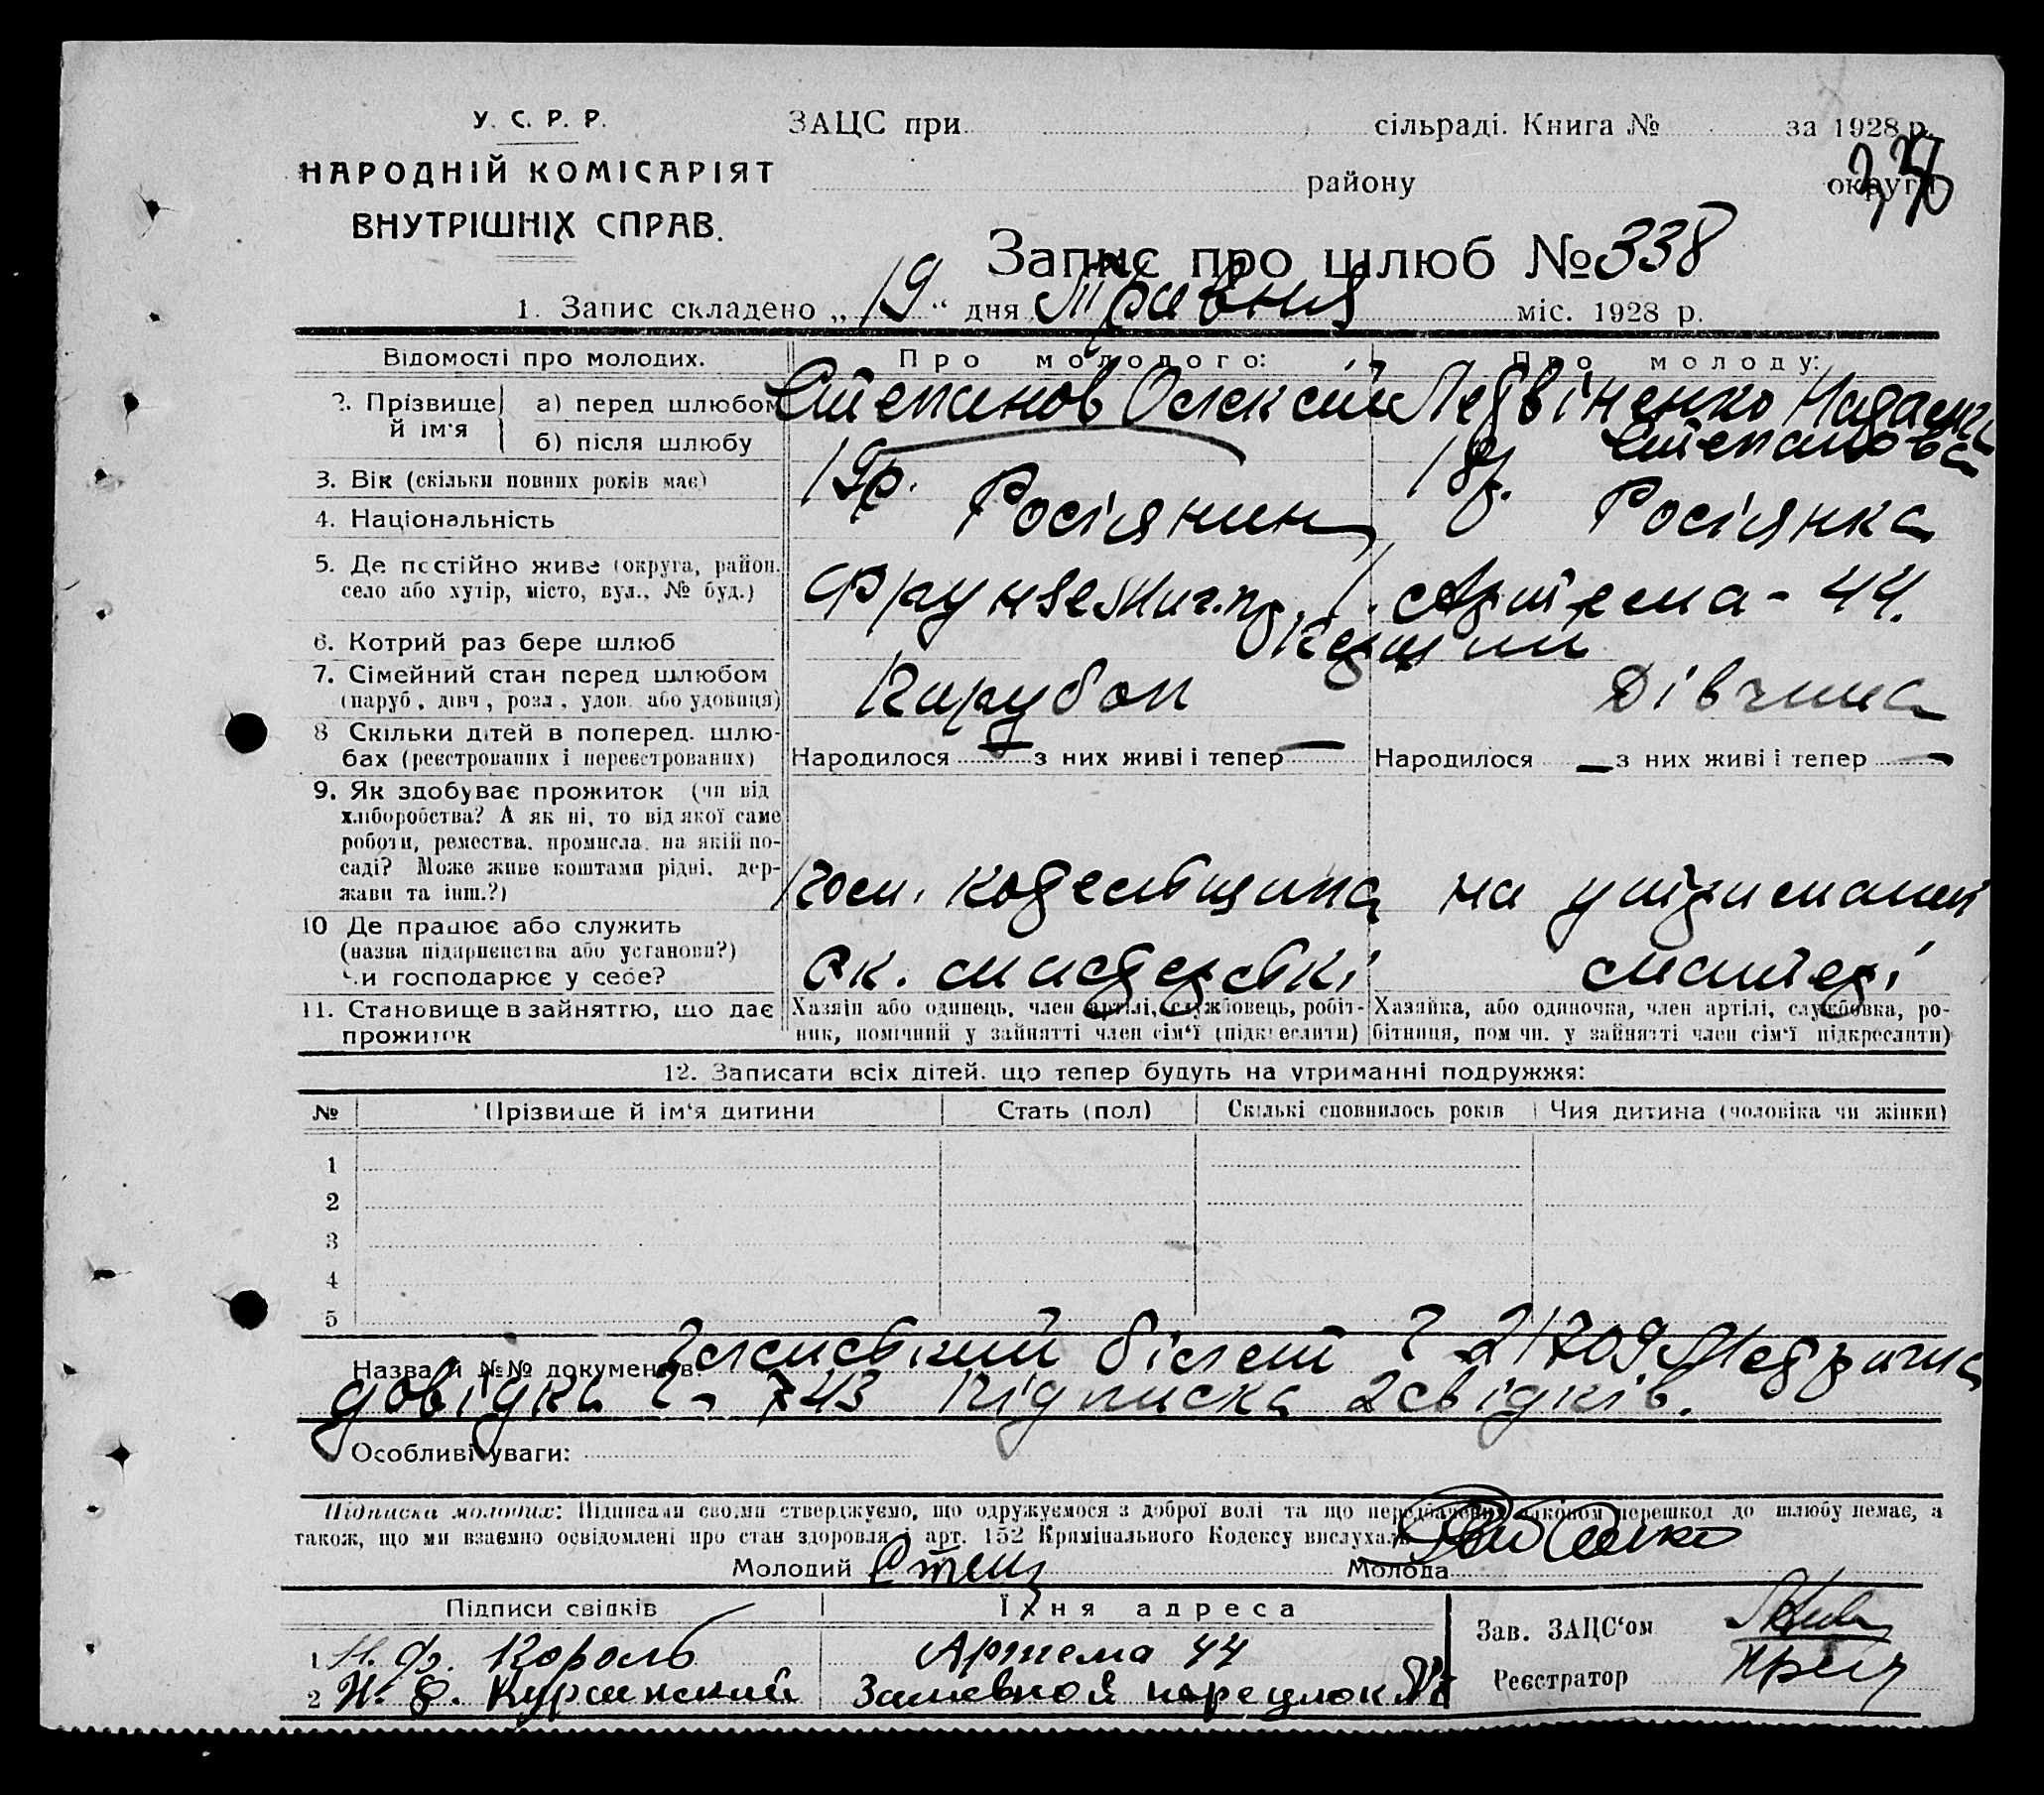 У. С. Р. Р.
НАРОДНІЙ КОМІСАРІЯТ
ВНУТРІШНІХ СПРАВ.
ЗАЦС при сільраді. Книга № за 1928 р.
району округи
Запис про шлюб № 338
1. Запис складено „19“ дня Травня міс. 1928 р.
Відомості про молодих. Про молодого: Про молоду:
2. Прізвище й ім'я а) перед шлюбом Степанов Олексій Літвіненко Надежда
б) після шлюбу Степанова
3. Вік (скільки повних років має) 19р. 18р.
4. Національність Росіянин Росіянка
5. Де постійно живе (округа, район, село або хутір, місто, вул., № буд.) Артема - 44.
6. Котрий раз бере шлюб Перший
7. Сімейний стан перед шлюбом (паруб., дівч., розл., удов. або удовиця) Парубок Дівчина
8 Скільки дітей в поперед. шлюбах (реєстрованих і нереєстрованих) Народилося — з них живі і тепер — Народилося — з них живі і тепер —
9. Як здобуває прожиток (чи від
хліборобства? А як ні, то від якої саме
роботи, ремества, промисла, на якій посаді? Може живе коштами рідні, держави та інш.?) на утриманні
10 Де працює або служить
(назва підприємства або установи?)
Чи господарює у себе? матері
11. Становище в зайняттю, що дає прожиток
Хазяїн або одинець, член артілі, службовець, робітник, помічний у зайнятті член сім'ї (підкреслити)
Хазяйка, або одиночка, член артілі, службовка, робітниця, помічн. у зайнятті член сім'ї підкреслити)
12. Записати всіх дітей, що тепер будуть на утриманні подружжя:
№ Прізвище й ім'я дитини Стать (пол) Скількі сповнилось років Чия дитина (чоловіка чи жінки)
1
2
3
4
5
Назва й №№ документів: білет 21709 Метрична
довідка 743 Підписка 2 свідків.
Особливі уваги:
Підписка молодих: Підписами своїми стверджуємо, що одружуємося з доброї волі та що передбачених законом перешкод до шлюбу немає, а
також, що ми взаємно освідомлені про стан здоровля і арт. 152 Кримінального Кодексу вислухали
Молодий Степ Молода
Підписи свідків Їхня адреса Зав. ЗАЦС'ом
1 Король Артема 44
2 Заливной переулок №
Реєстратор